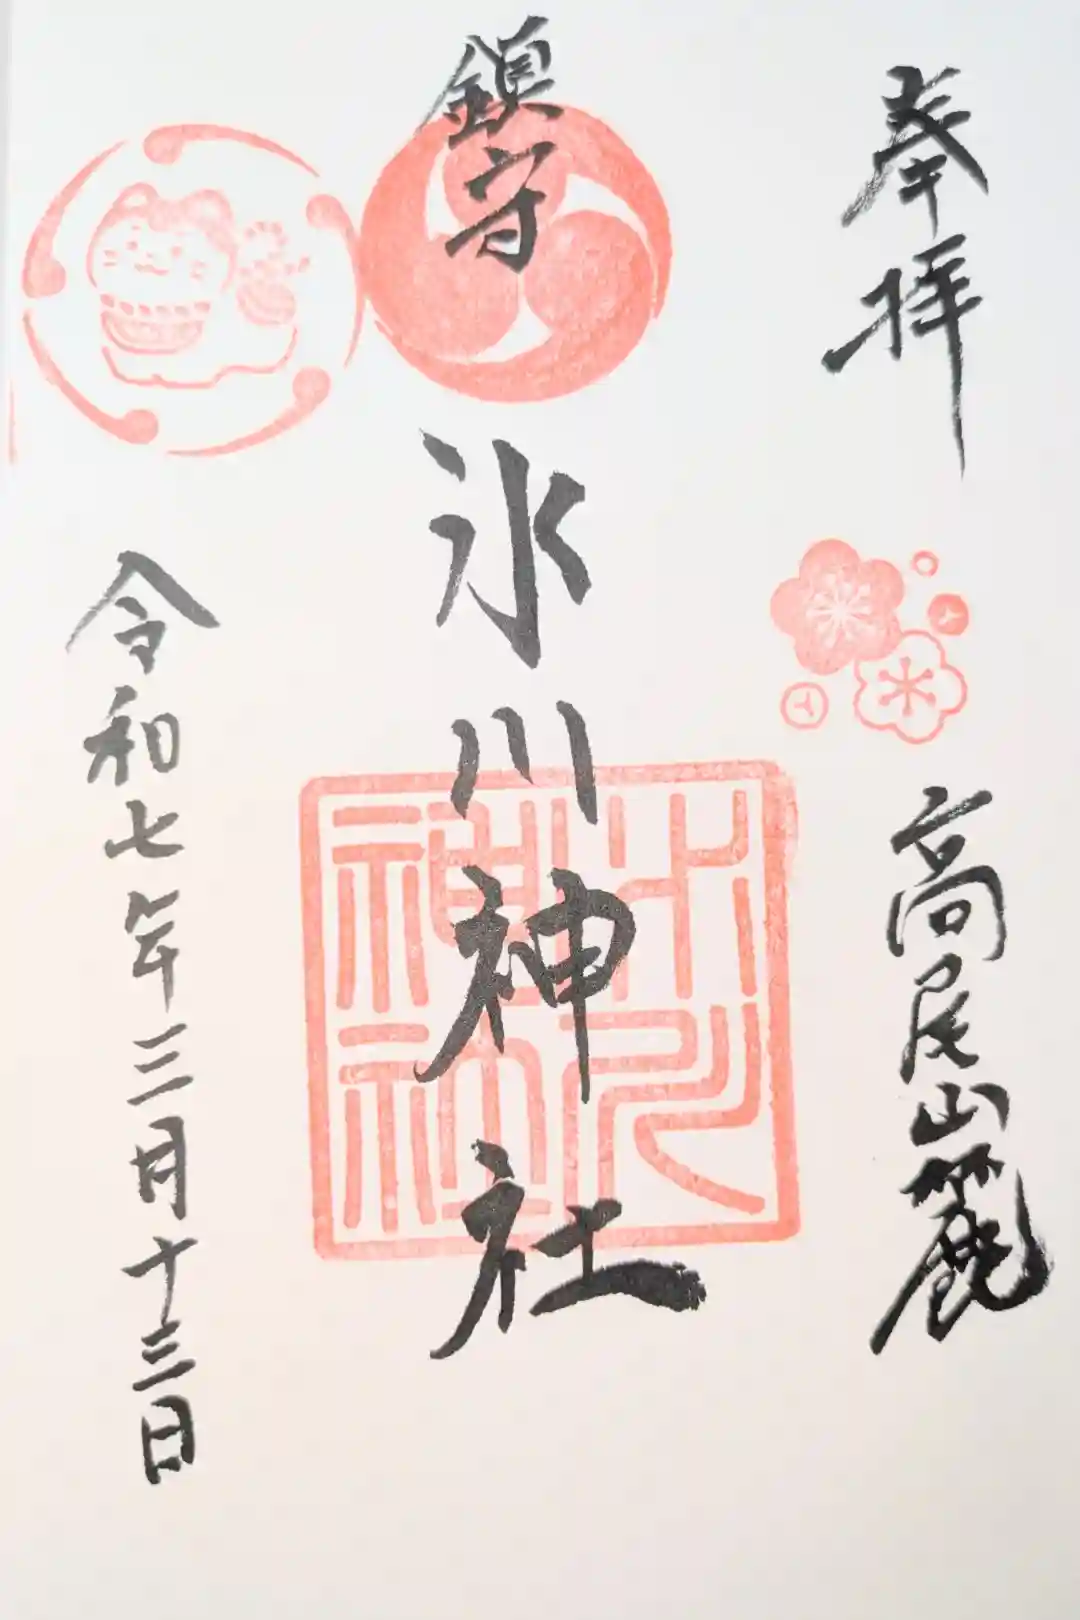 奉拝
高尾山麓
鎮守
氷川神社
氷川神社
令和七年三月十三日